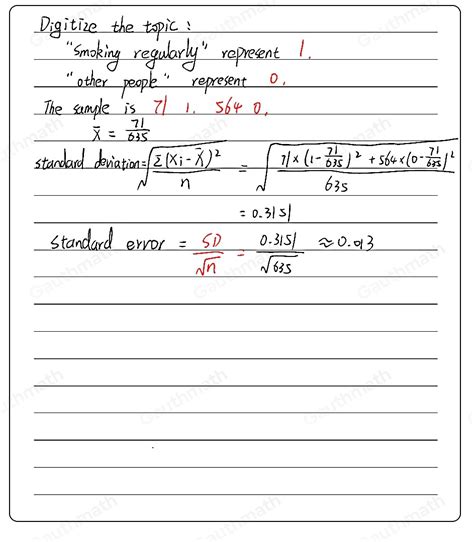 Digitize the topic :
"Smoking regularly" represent 1.
"other people" represent 0.
The sample is 71 1. 564 0.
x̄ = 71/635
standard deviation = √(Σ(Xi - X̄)²/n) = √((71×(1-71/635)² + 564×(0-71/635)²)/635)
= 0.3151
standard error = SD/√n = 0.3151/√635 ≈ 0.013
Gauthmath